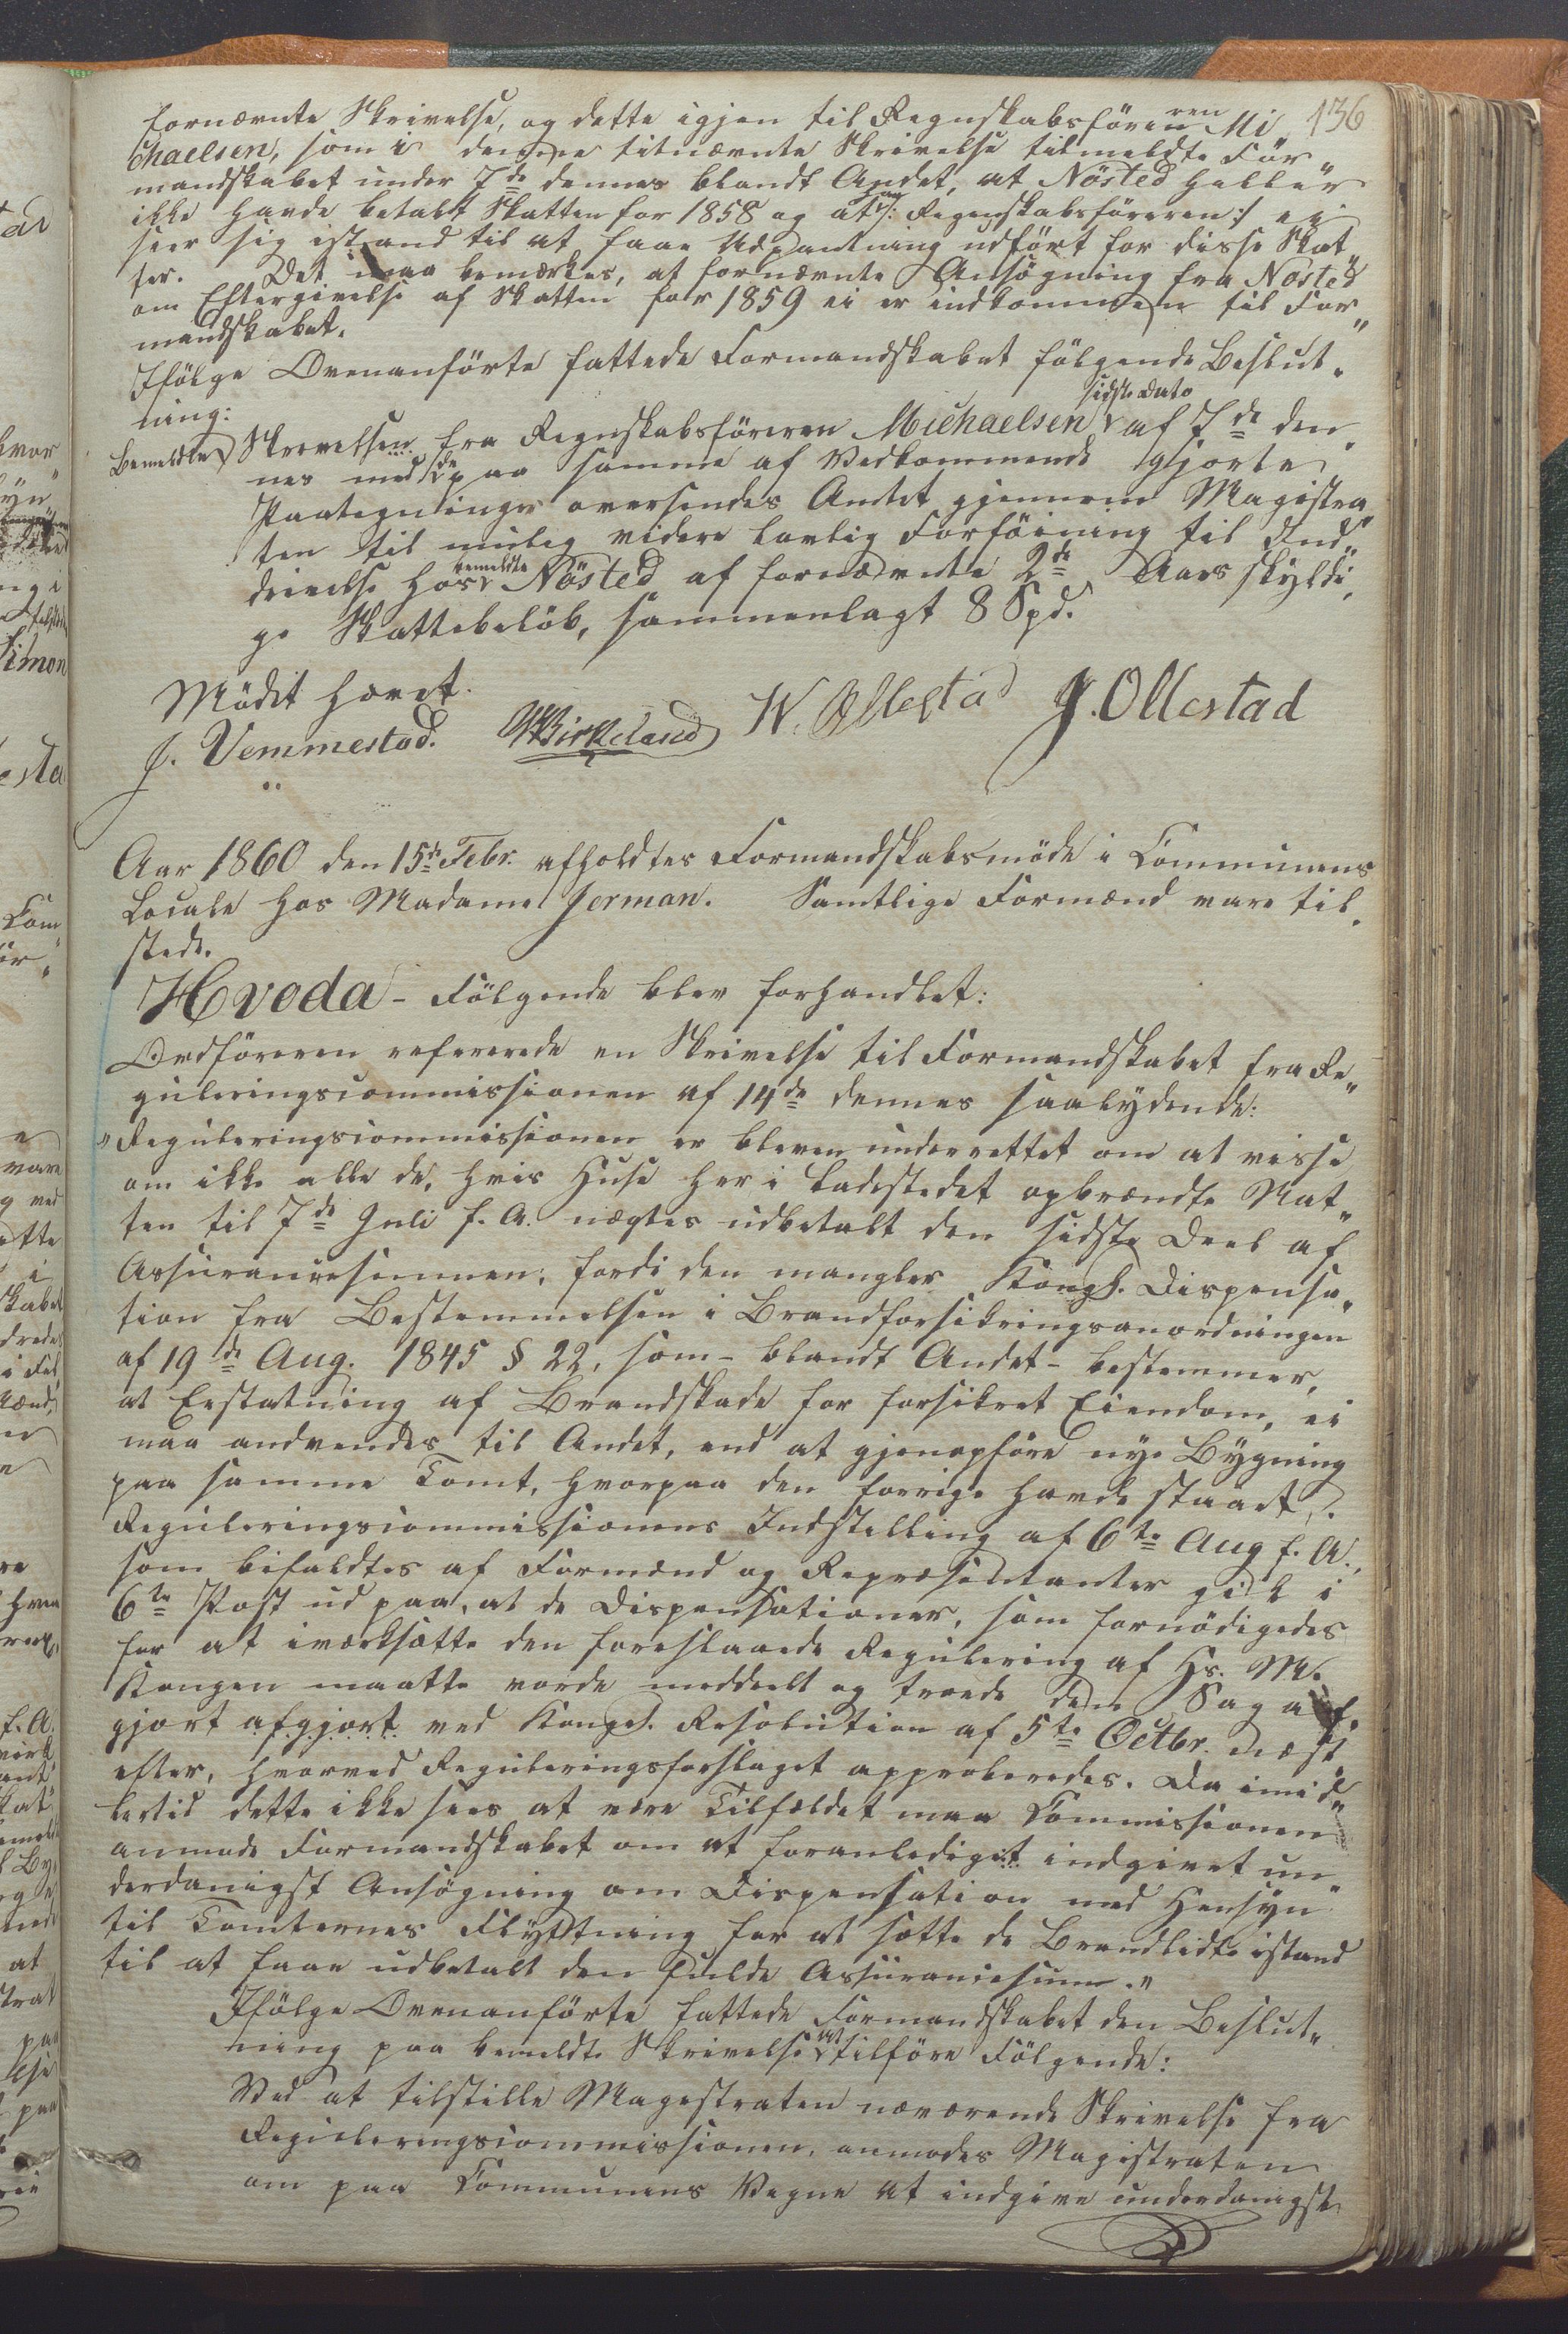 136
fornævnte Skrivelse, og dette igjen til Regnskabsföreren Mi„
chaelsen, som i denne sitnævnte Skrivelse tilmeldte For„
mandskabet under 7de dennes blandt Andet, at Nösted heller
ikke havde betalt Skatten for 1858 og at han /: Regnskabsföreren :/ ei
seer sig istand til at faae Udpantning udfört for disse Skat„
ter. Det maa bemærkes, at fornævnte Ansögning fra Nösted
om Eftergivelse af Skatten for 1859 ei er indkommen til For„
mandskabet.
Ifölge Ovenanförte fattede Formandskabet fölgende Beslut„
ning:
Bemeldte Skrivelsen fra Regnskabsföreren Michaelsen sidste Dato af 7de den„
nes med de paa samme af Vedkommende gjorte
Paategninger oversendes Amtet gjennem Magistra„
ten til mulig videre lovlig Forföining til Ind„
drivelse hos bemeldte Nösted af fornævnte 2de Aars skyldi„
ge Skattebelöb, sammenlagt 8 Spd.
Mödet hævet.
J. Vemmestad. Birkeland W. Ollestad J. Ollestad
Aar 1860 den 15de Febr. afholdtes Formandskabsmöde i Communens
Locale hos Madame Jerman. Samtlige Formænd vare til„
stede.
Hvoda - Fölgende blev forhandlet:
Ordföreren refererede en Skrivelse til Formandskabet fra Re„
guleringscommissionen af 14de dennes saalydende:
„Reguleringscommissionen er bleven underrettet om at visse
om ikke alle de, hvis Huse her i Ladestedet opbrændte Nat„
ten til 7de Juli f. A. nægtes udbetalt den sidste Deel af
Assurancesummen, fordi den mangler Kongl. Dispensa„
tion fra Bestemmelsen i Brandforsikringsanordningen
af 19de Aug. 1845 § 22, som - blandt Andet - bestemmer,
at Erstatning af Brandskade for forsikret Eiendom, ei
maa andvendes til Andet, end at gjenopföre nye Bygning
paa samme Tomt, hvorpaa den forrige havde staaet.
Reguleringscommissionens Indstilling af 6te Aug f. A.,
som bifaldtes af Formænd og Repræsentanter gik i
6te Post ud paa, at de Dispensationer, som fornödigedes
for at iværksætte den foreslaaede Regulering af Hs. M.
Kongen maatte vorde meddeelt og troede den Sag af„
gjort afgjort ved Kongel. Resolution af 5te Octbr. næst
efter, hvorved Reguleringsforslaget approberedes. Da imid„
lertid dette ikke sees at være Tilfældet maa Commissionen
anmode Formandskabet om at foranlediget indgivet un„
derdanigst Ansögning om Dispensation med Hensyn
til Tomternes Flyttning for at sætte de Brandlidte istand
til at faae udbetalt den fulde Assurancesum.„
Ifölge Ovenanförte fattede Formandskabet den Beslut„
ning paa bemeldte Skrivelse at tilföre Fölgende:
Ved at tilstille Magestraten nærværende Skrivelse fra
Reguleringscommissionen, anmodes Magistraten
om paa Communens Vegne at indgive underdanigst